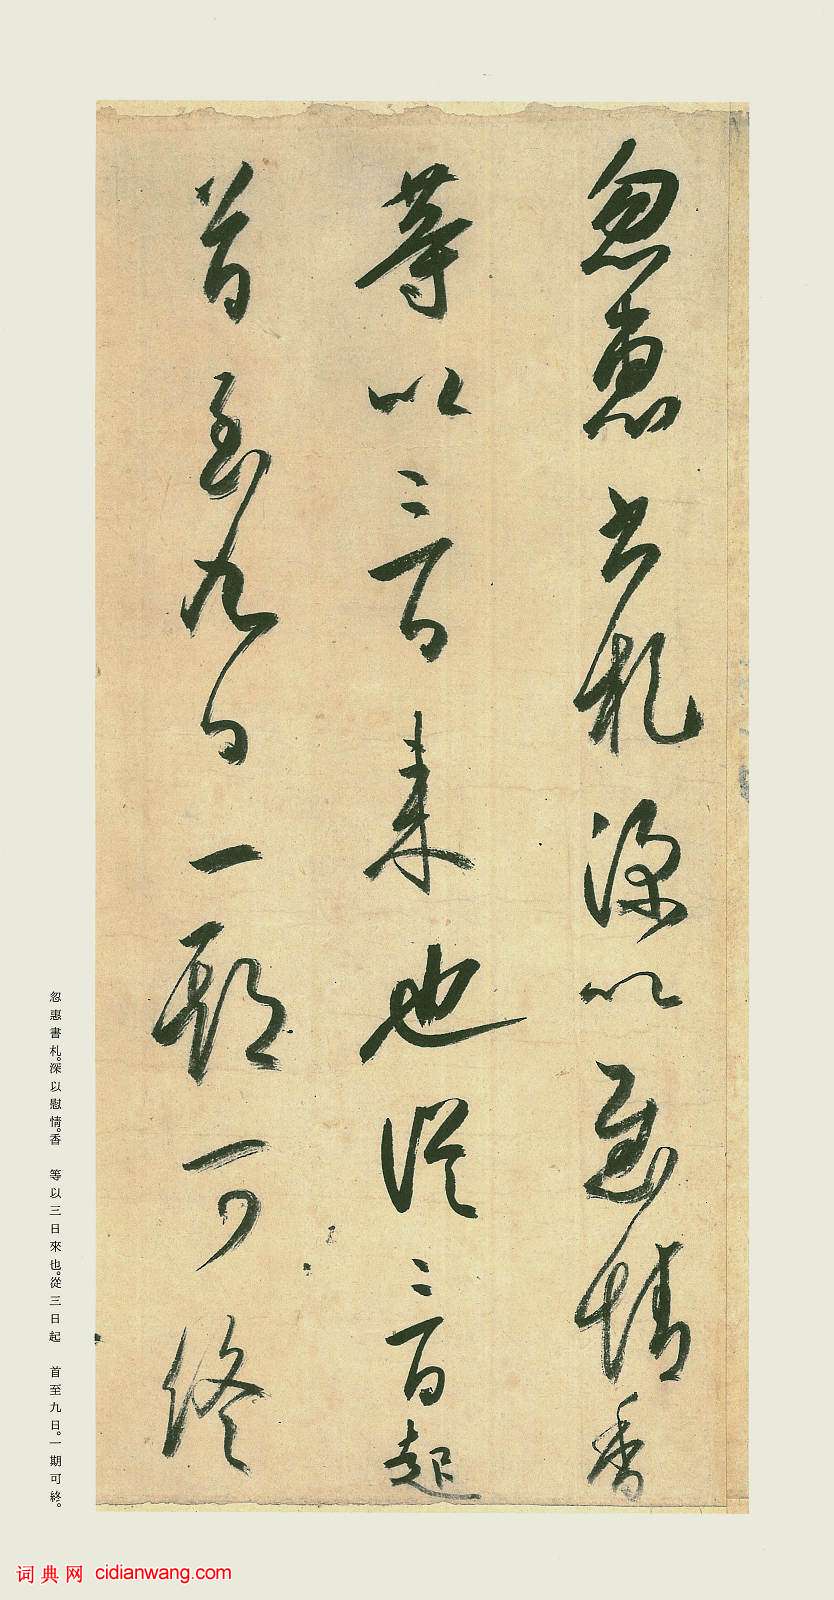 忽惠書札深以慰情香
等以三日来也從三日起
首至九日一期可終
忽惠書札。深以慰情。香　等以三日來也。從三日起　首至九日。一期可終。
词典网 cidianwang.com